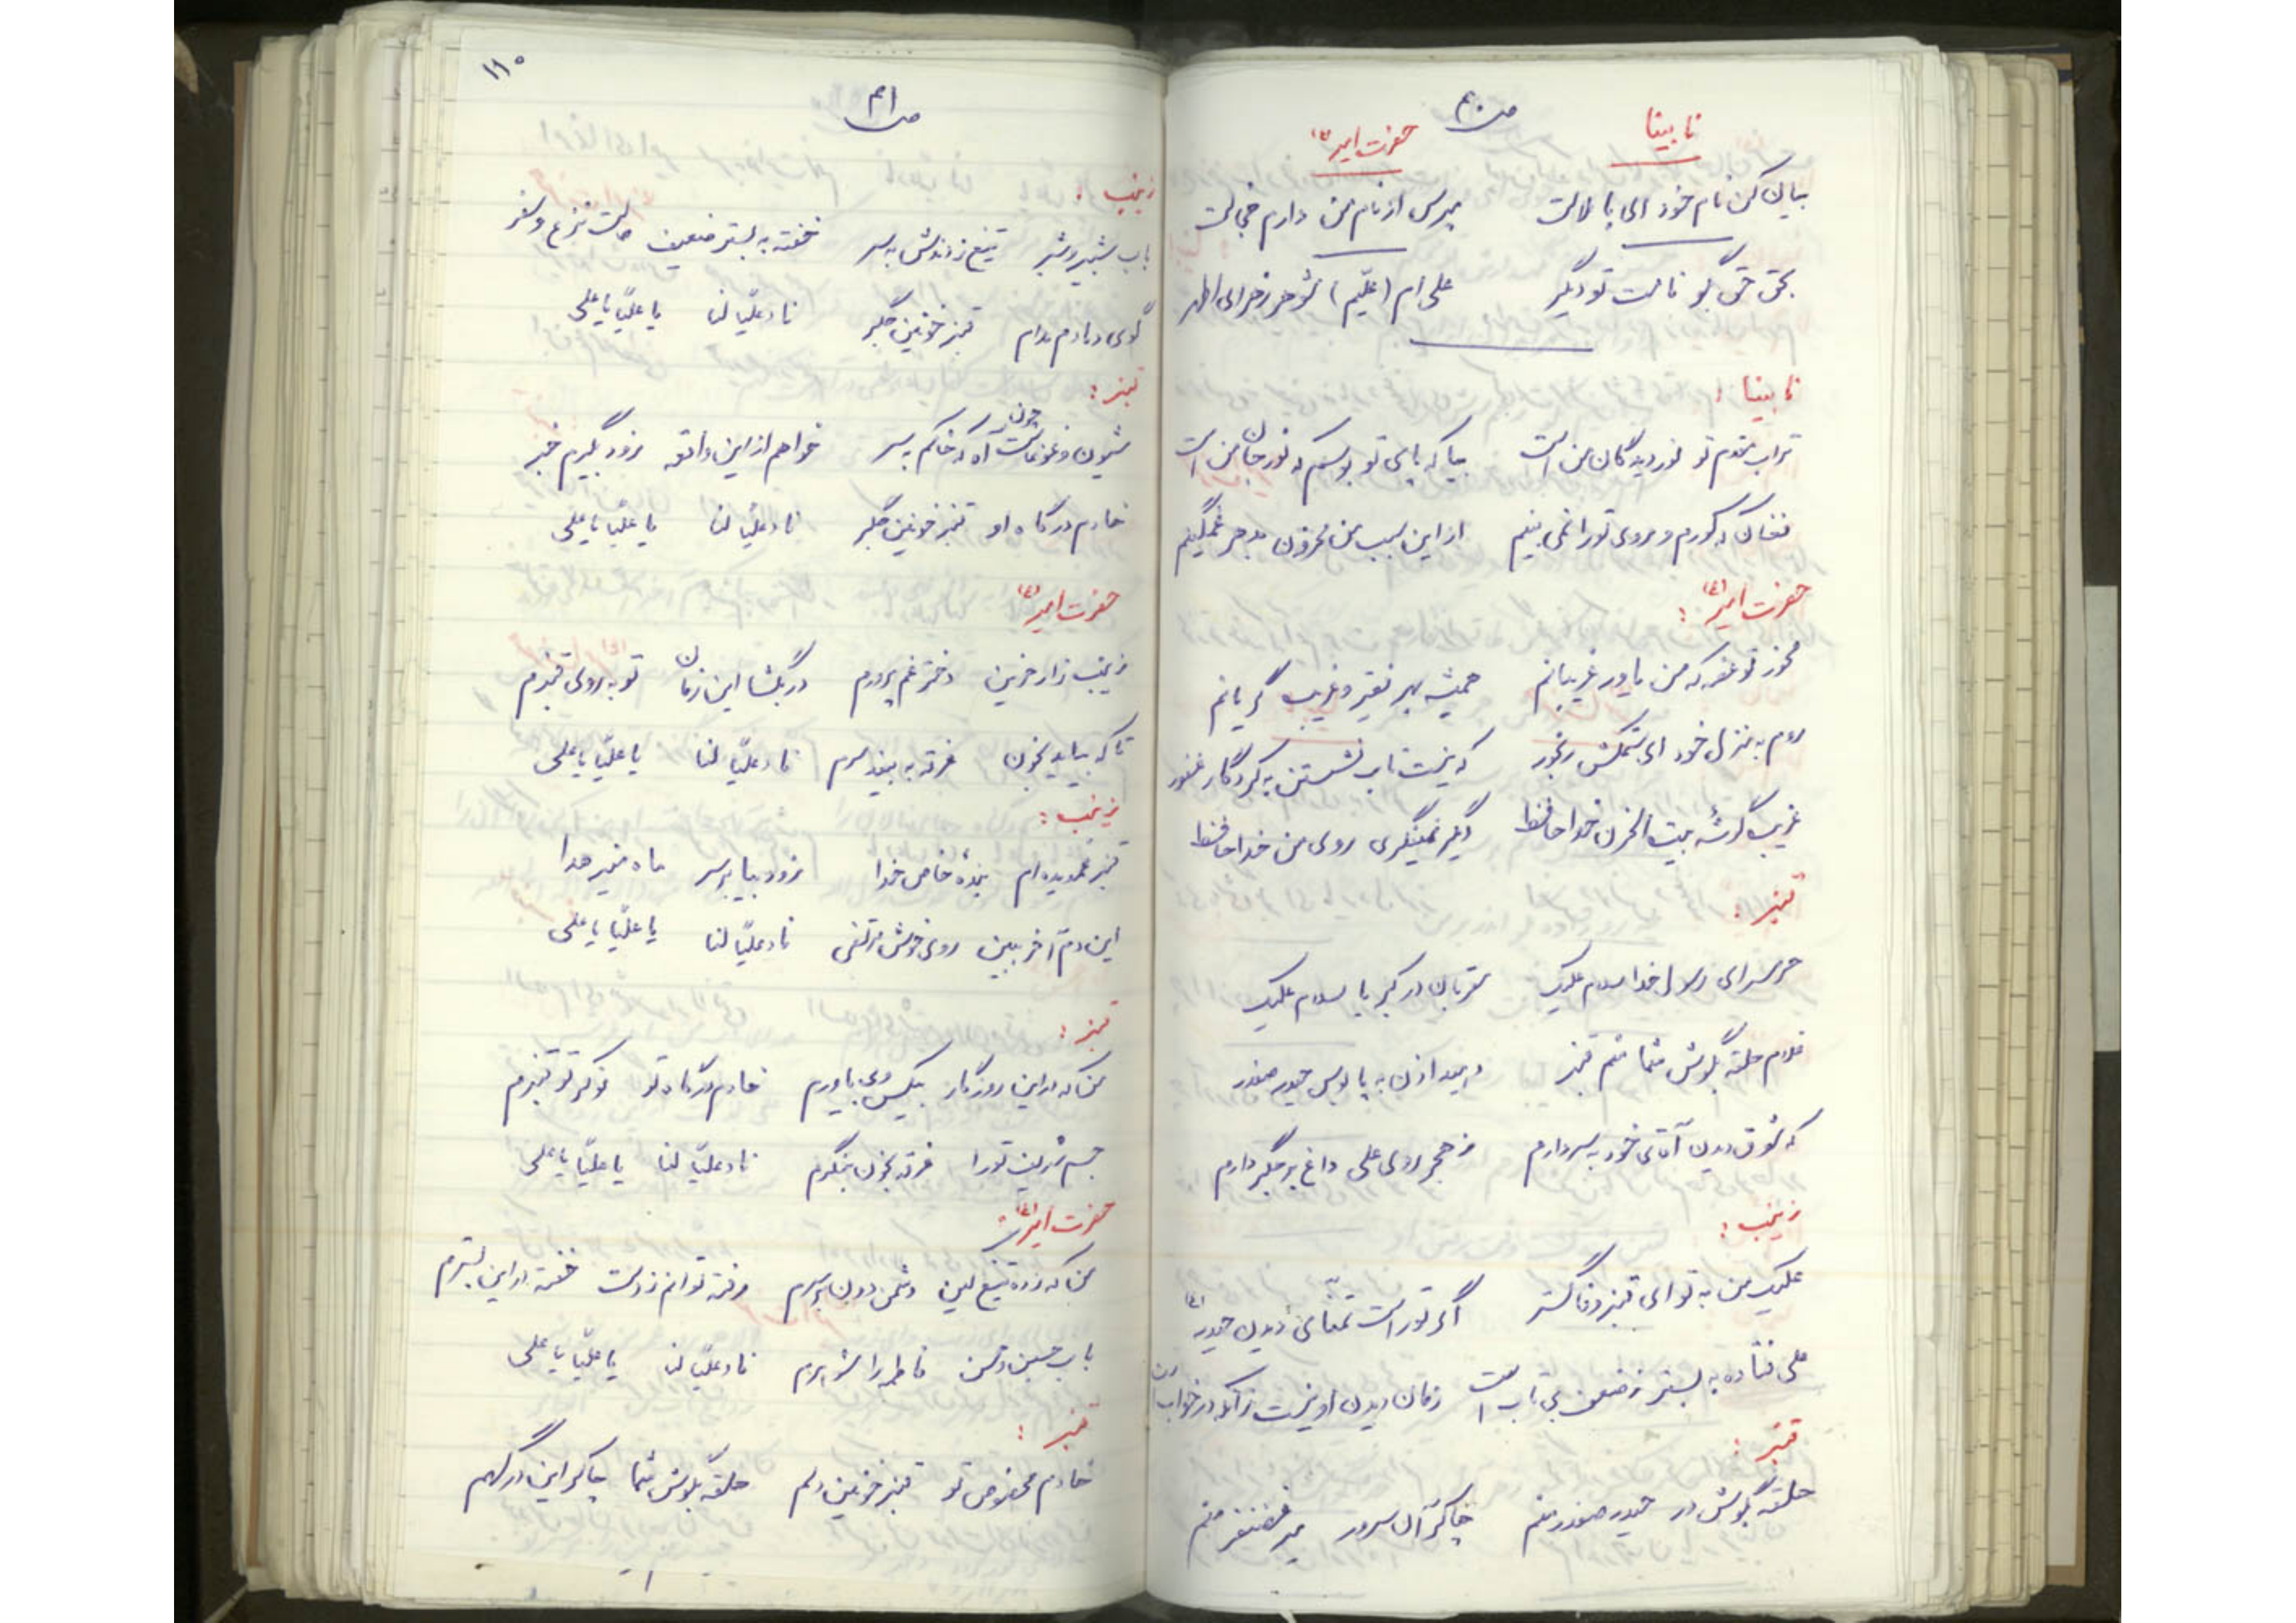 ص ۴۰
نابینا
حضرت امیر (ع)
بیان کن نام خود ای با ملالت مپرس از نام من دارم خجالت
بحق حق بگو نامت تو دیگر علی ام (علیم) شوهر زهرای اطهر
نابینا :
تراب مقدم تو نور دیدگان من است بیا که پای تو بوسم که نور جان من است
فغان که کورم و روی تو را نمی بینم از این سبب من محزون به دهر غمگینم
حضرت امیر (ع) :
مخور تو غصه که من یاور غریبانم همیشه بهر فقیر و غریب گریانم
روم به منزل خود ای ستمکش رنجور که نیست تاب نشستن به کردگار غفور
غریب گوشه بیت الحزن خدا حافظ دگر نمینگری روی من خدا حافظ
قنبر :
حرمسرای رسول خدا سلام علیک مقربان در کبریا سلام علیک
غلام حلقه بگوش شما منم قنبر دهید اذن به پابوس حیدر صفدر
که شوق دیدن آقای خود به سر دارم ز هجر روی علی داغ بر جگر دارم
زینب :
علیک من به تو ای قنبر وفا گستر اگر تو راست تمنای دیدن حیدر (ع)
علی فتاده به بستر ز ضعف بی تاب است زمان دیدن او نیست زآنکه در خواب است
قنبر :
حلقه بگوش در حیدر صفدر منم چاکر آن سرور میر غضنفر منم
۱۱۰
ص ۴۱
زینب :
باب شبیر و شبر تیغ زدندش به سر خفته به بستر ضعیف حالت نزع و سفر
گوی دمادم مدام قنبر خونین جگر ناد علیّا لنا یا علیّا یا علی
قنبر :
شیون و غوغاست چون آه که خاکم به سر خواهم از این واقعه زود بگیرم خبر
خادم درگاه او قنبر خونین جگر ناد علیّا لنا یا علیّا یا علی
حضرت امیر (ع)
زینب زار حزین دختر غم پرورم در بگشا این زمان تو به روی قنبرم
تا که بیاید بخون غرقه به بیند سرم ناد علیّا لنا یا علیّا یا علی
زینب :
قنبر غمدیده ام بندهٔ خاص خدا زود بیا بر سر ماه منیر هدا
این دم آخر ببین روی خوش مرتضی ناد علیّا لنا یا علیّا یا علی
قنبر :
من که در این روزگار بیکس و بی یاورم خادم درگاه تو نوکر تو قنبرم
جسم شریف تو را غرقه بخون بنگرم ناد علیّا لنا یا علیّا یا علی
حضرت امیر (ع) :
من که زده تیغ کین دشمن دون بر سرم رفته توانم ز دست خفته در این بسترم
باب حسین و حسن فاطمه را شوهرم ناد علیّا لنا یا علیّا یا علی
قنبر :
خادم مخصوص تو قنبر خونین دلم حلقه بگوش شما چاکر این درگهم